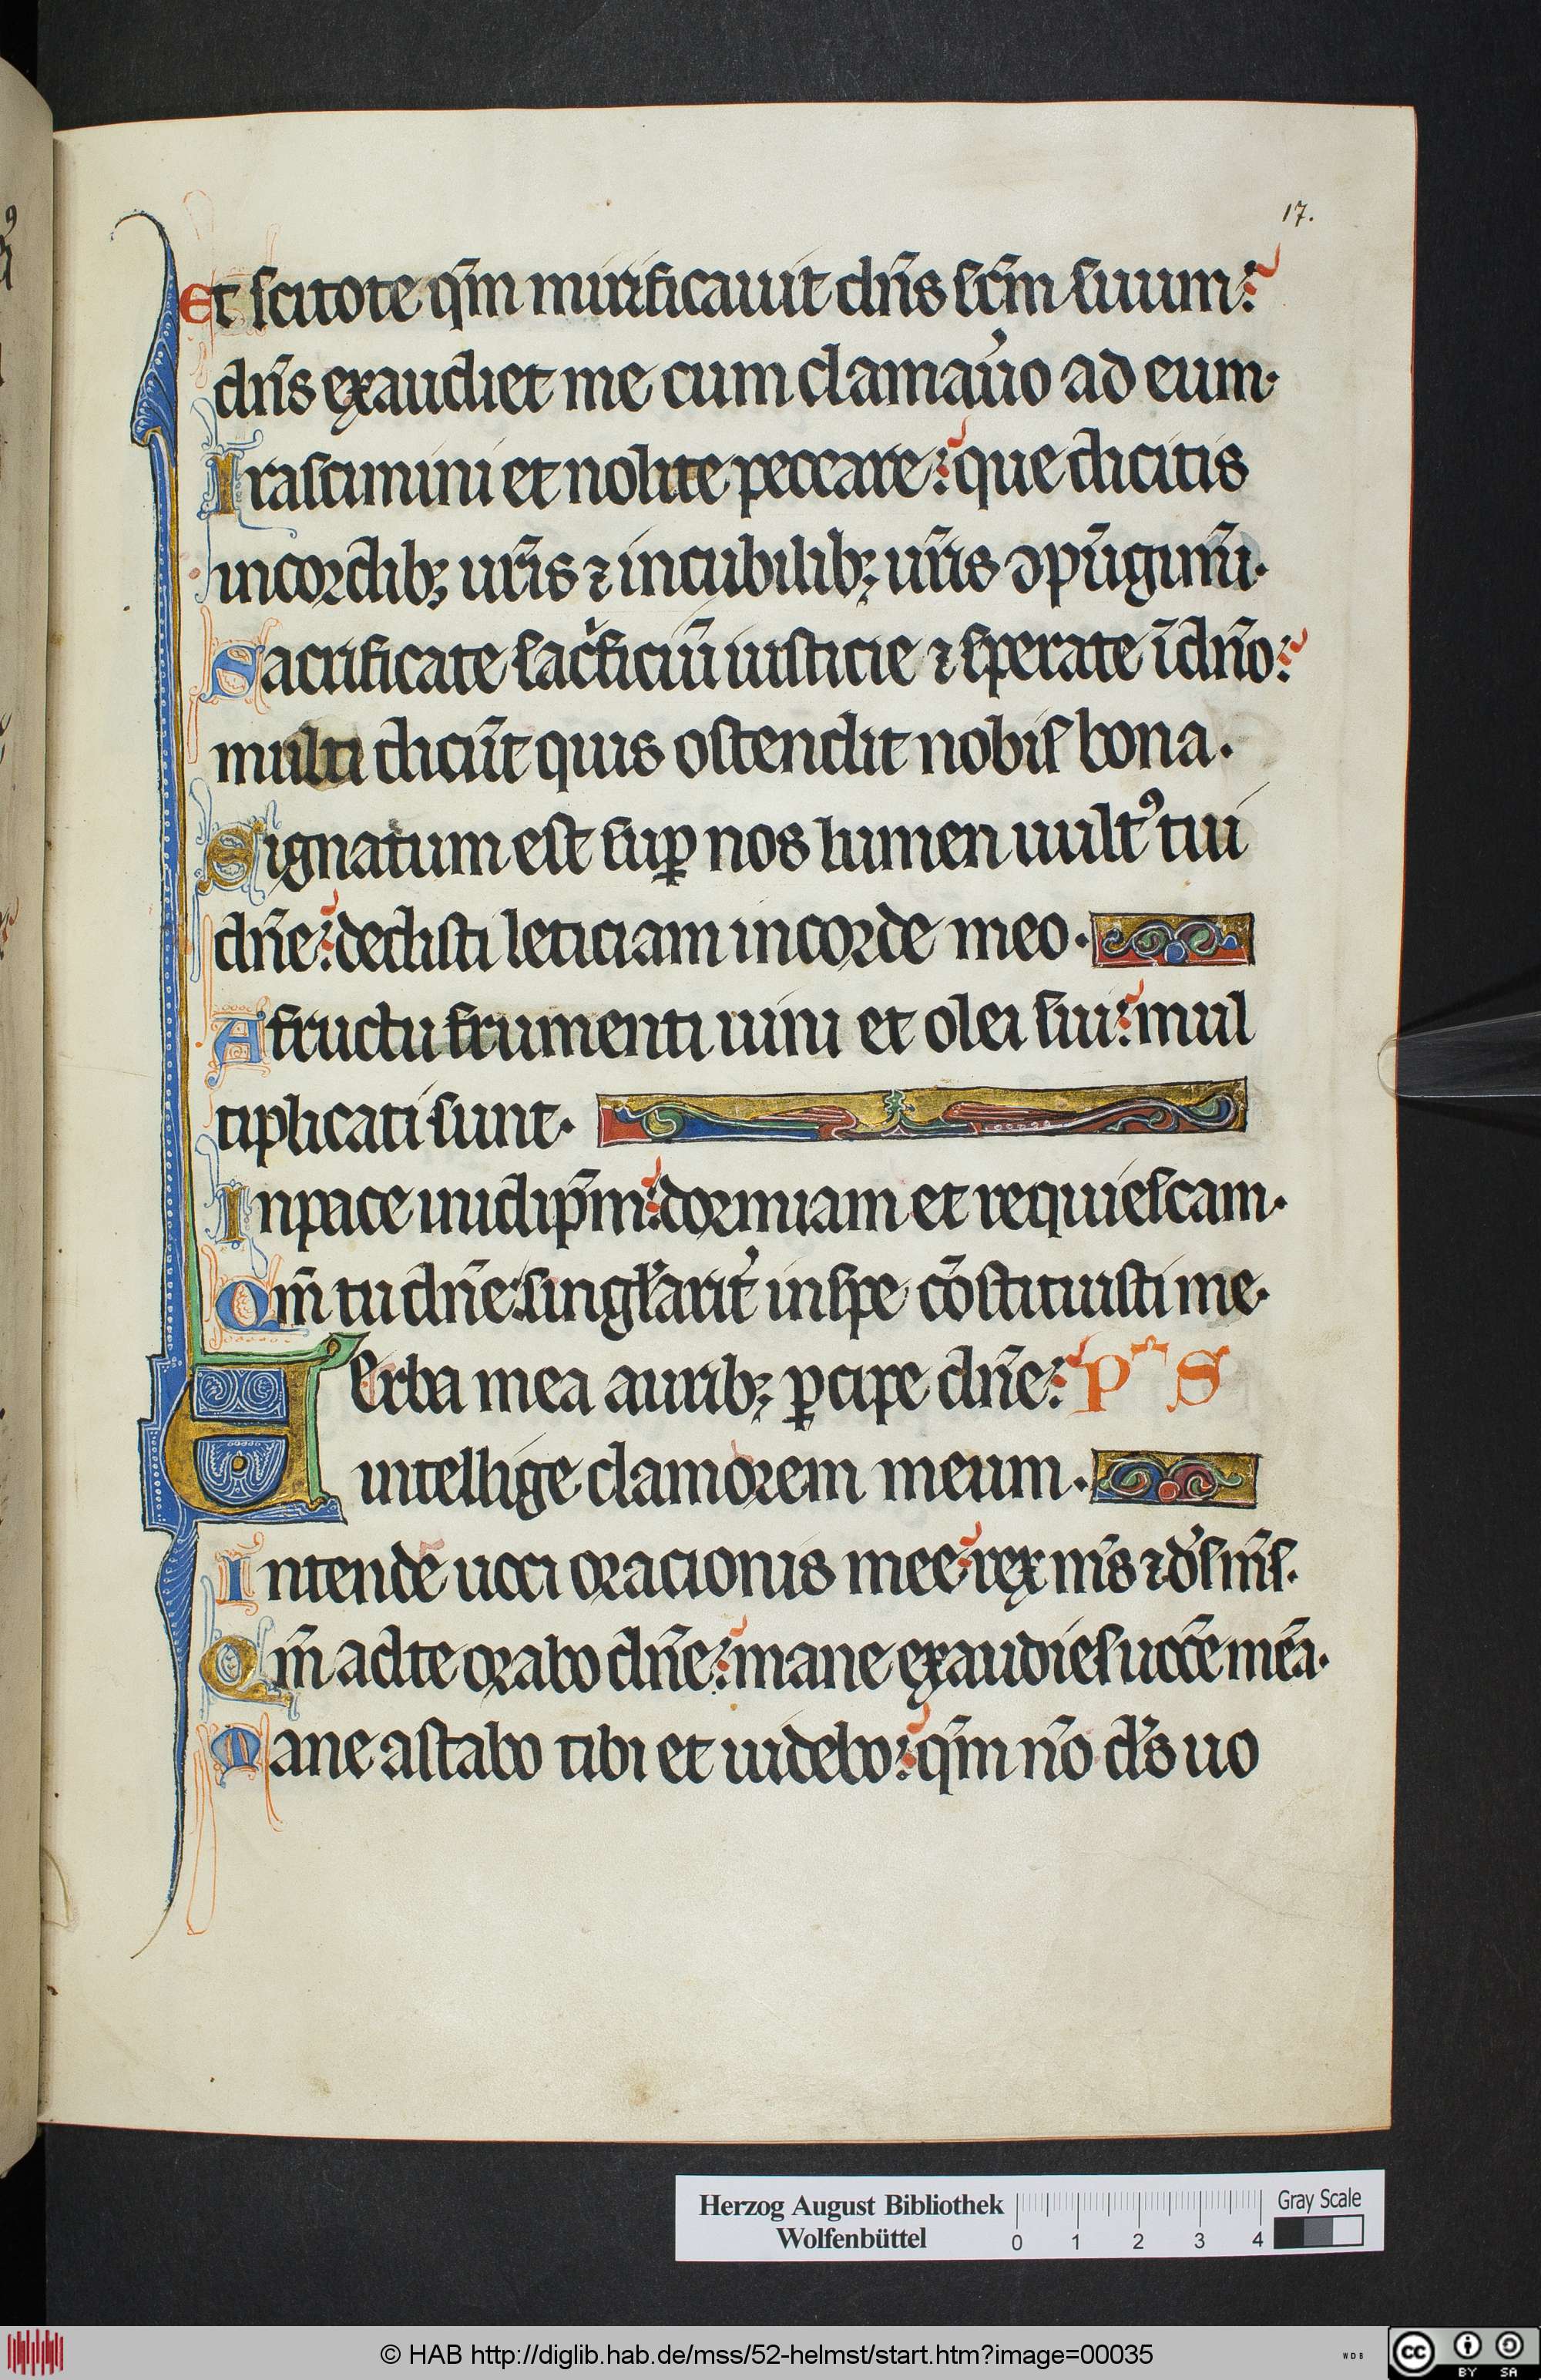 17.
Et scitote qm̄ mirificauit dn̄s scm̄ suum:
dn̄s exaudiet me cum clamau̓o ad eum·
Irascimini et nolite peccare: que dicitis
in cordib; ur̄is ⁊ in cubilib; ur̄is ↄpūgimī·
Sacrificate sacͥficiū iusticie ⁊ sperate ī dn̄o:
multi dicūt quis ostendit nobis bona.
Signatum est suꝑ nos lumen uultꝰ tui
dn̄e: dedisti leticiam in corde meo·
A fructu frumenti uini et olei sui: mul
tiplicati sunt·
In pace in idip̄m: dormiam et requiescam·
Qm̄ tu dn̄e: singl̓arit̓ in spe cōstituisti me·
Verba mea aurib; ꝑcipe dn̄e: P S
intellige clamorem meum·
Intende uoci oracionis mee: rex m̄s ⁊ d̓s m̄s·
Qm̄ ad te orabo dn̄e: mane exaudies uocē meā·
Mane astabo tibi et uidebo: qm̄ nō d̓s uo
Herzog August Bibliothek
Wolfenbüttel
0 1 2 3 4
Gray Scale
© HAB http://diglib.hab.de/mss/52-helmst/start.htm?image=00035
WDB
cc BY SA